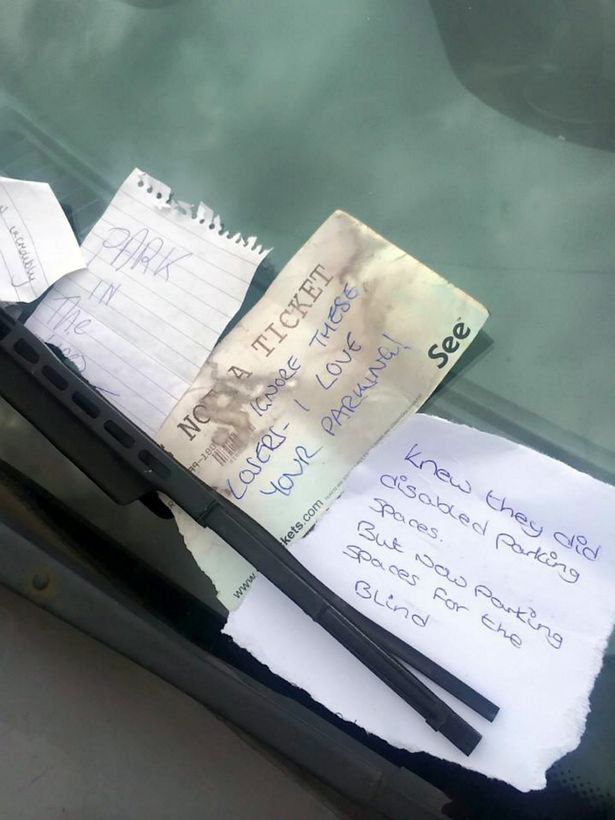 incredibly
PARK
IN
THE
NOT A TICKET
IGNORE THESE
LOSERS- I LOVE
YOUR PARKING!
See
kets.com
www.
Knew they did
disabled parking
spaces.
But now parking
spaces for the
Blind